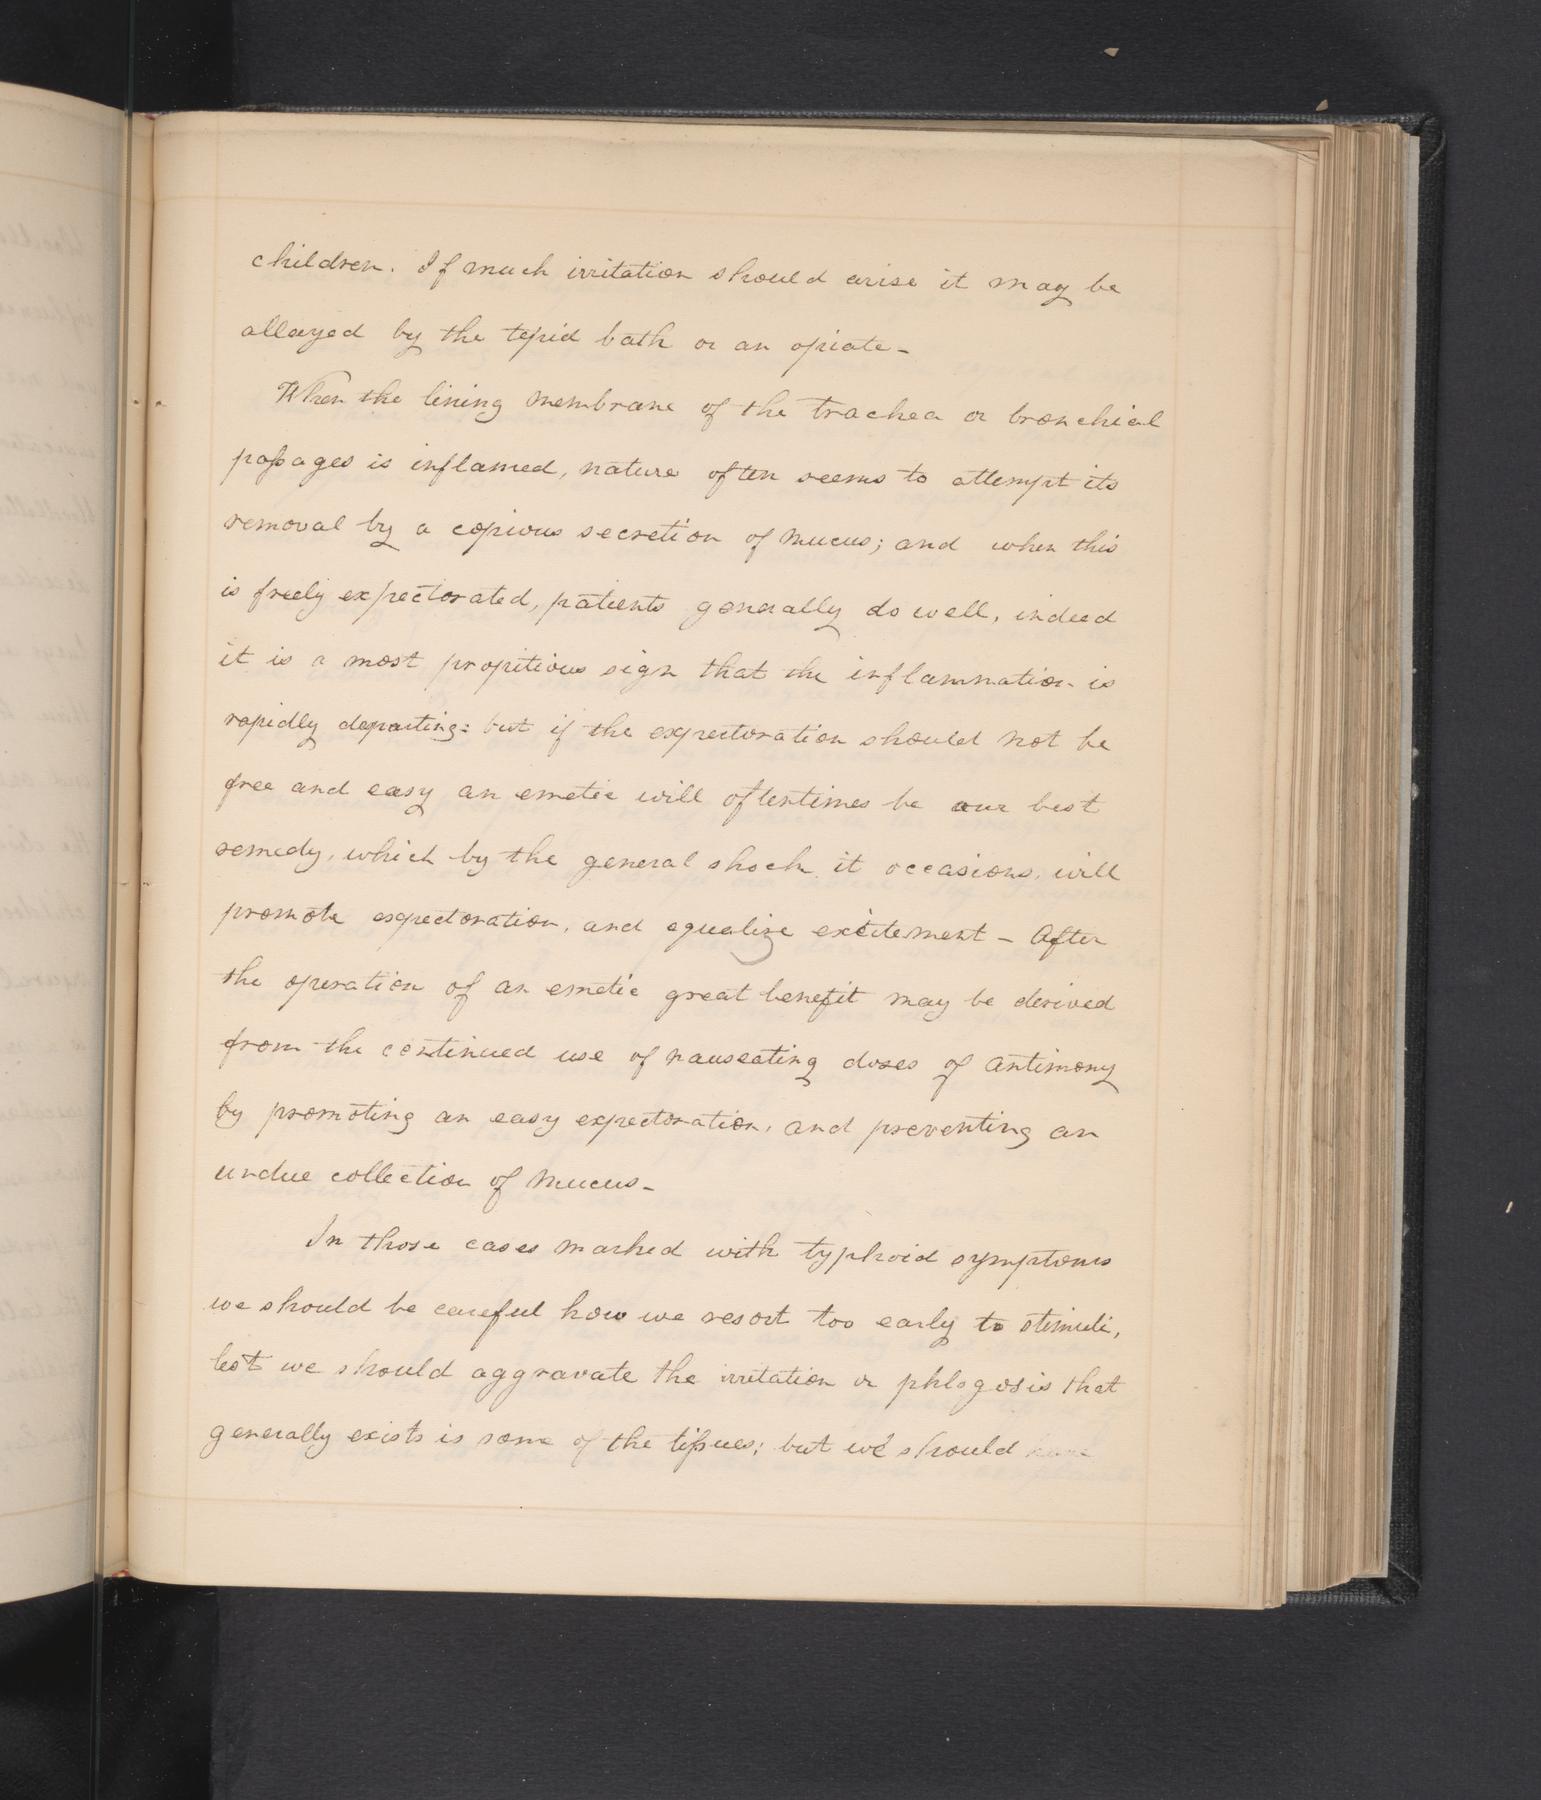 children. If much irritation should arise it may be
allayed by the tepid bath or an opiate –
When the lining membrane of the trachea or bronchial
passages is inflamed, nature often seems to attempt its
removal by a copious secretion of mucus; and when this
is freely expectorated, patients generally do well, indeed
it is a most propitious sign that the inflammation is
rapidly departing: but if the expectoration should not be
free and easy an emetic will oftentimes be our best
remedy, which by the general shock it occasions, will
promote expectoration, and equalize excitement – After
the operation of an emetic great benefit may be derived
from the continued use of nauseating doses of antimony
by promoting an easy expectoration, and preventing an
undue collection of mucus –
In those cases marked with typhoid symptoms
we should be careful how we resort too early to stimuli,
lest we should aggravate the irritation or phlogosis that
generally exists is some of the tissues; but we should have